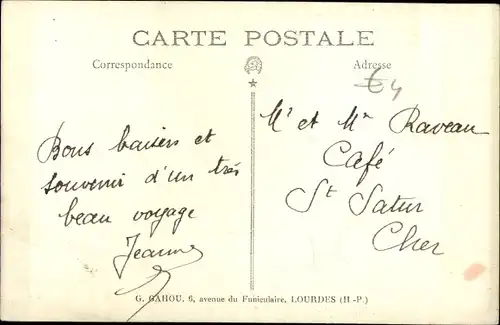 CARTE POSTALE
Correspondance
Adresse
€4
Bons baisers et
souvenir d'un très
beau voyage
Jeanne
Mr et Me Raveau
Café
St Satur
Cher
G. GAHOU, 6, avenue du Funiculaire, LOURDES (H-P.)